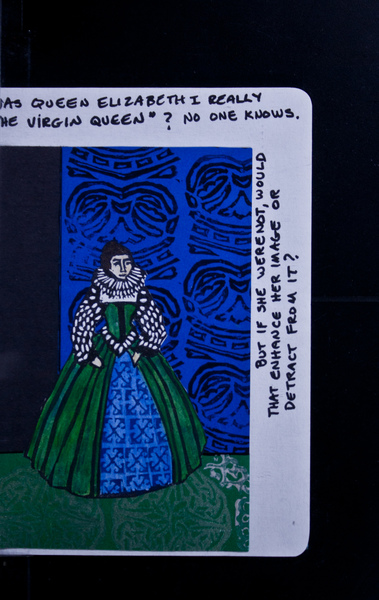 WAS QUEEN ELIZABETH I REALLY
THE VIRGIN QUEEN" ? NO ONE KNOWS.
BUT IF SHE WERE NOT, WOULD
THAT ENHANCE HER IMAGE OR
DETRACT FROM IT?